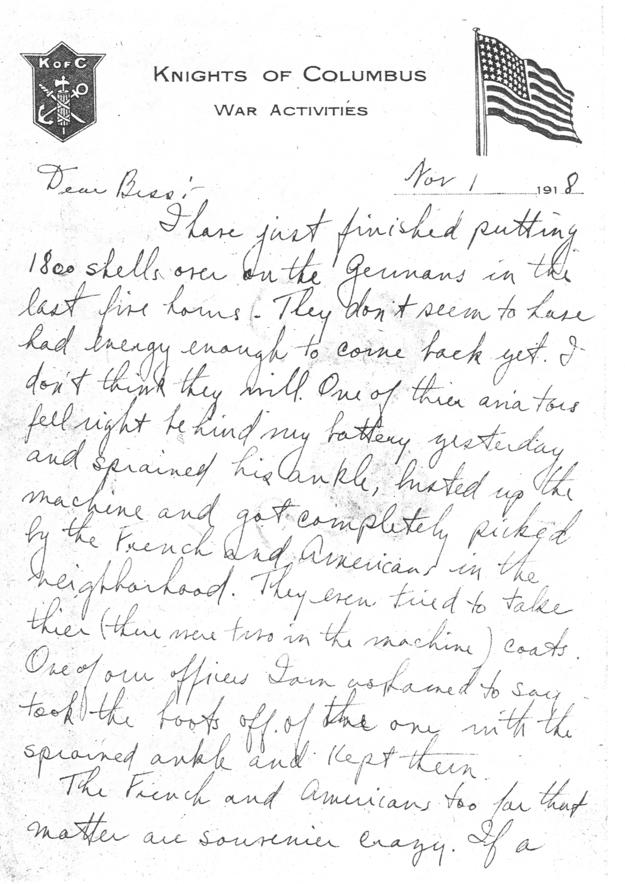 K OF C
KNIGHTS OF COLUMBUS
WAR ACTIVITIES
Nov 1 1918
Dear Bess:-
I have just finished putting
1800 shells over on the Germans in the
last five hours. They don't seem to have
had energy enough to come back yet. I
don't think they will. One of thier aviators
fell right behind my battery yesterday
and sprained his ankle, busted up the
machine and got completely picked
by the French and Americans in the
neighborhood. They even tired to take
thier (there were two in the machine) coats.
One of our officers I am ashamed to say
took the boots off of the one with the
sprained ankle and kept them.
The French and Americans too for that
matter are souvenier crazy. If a